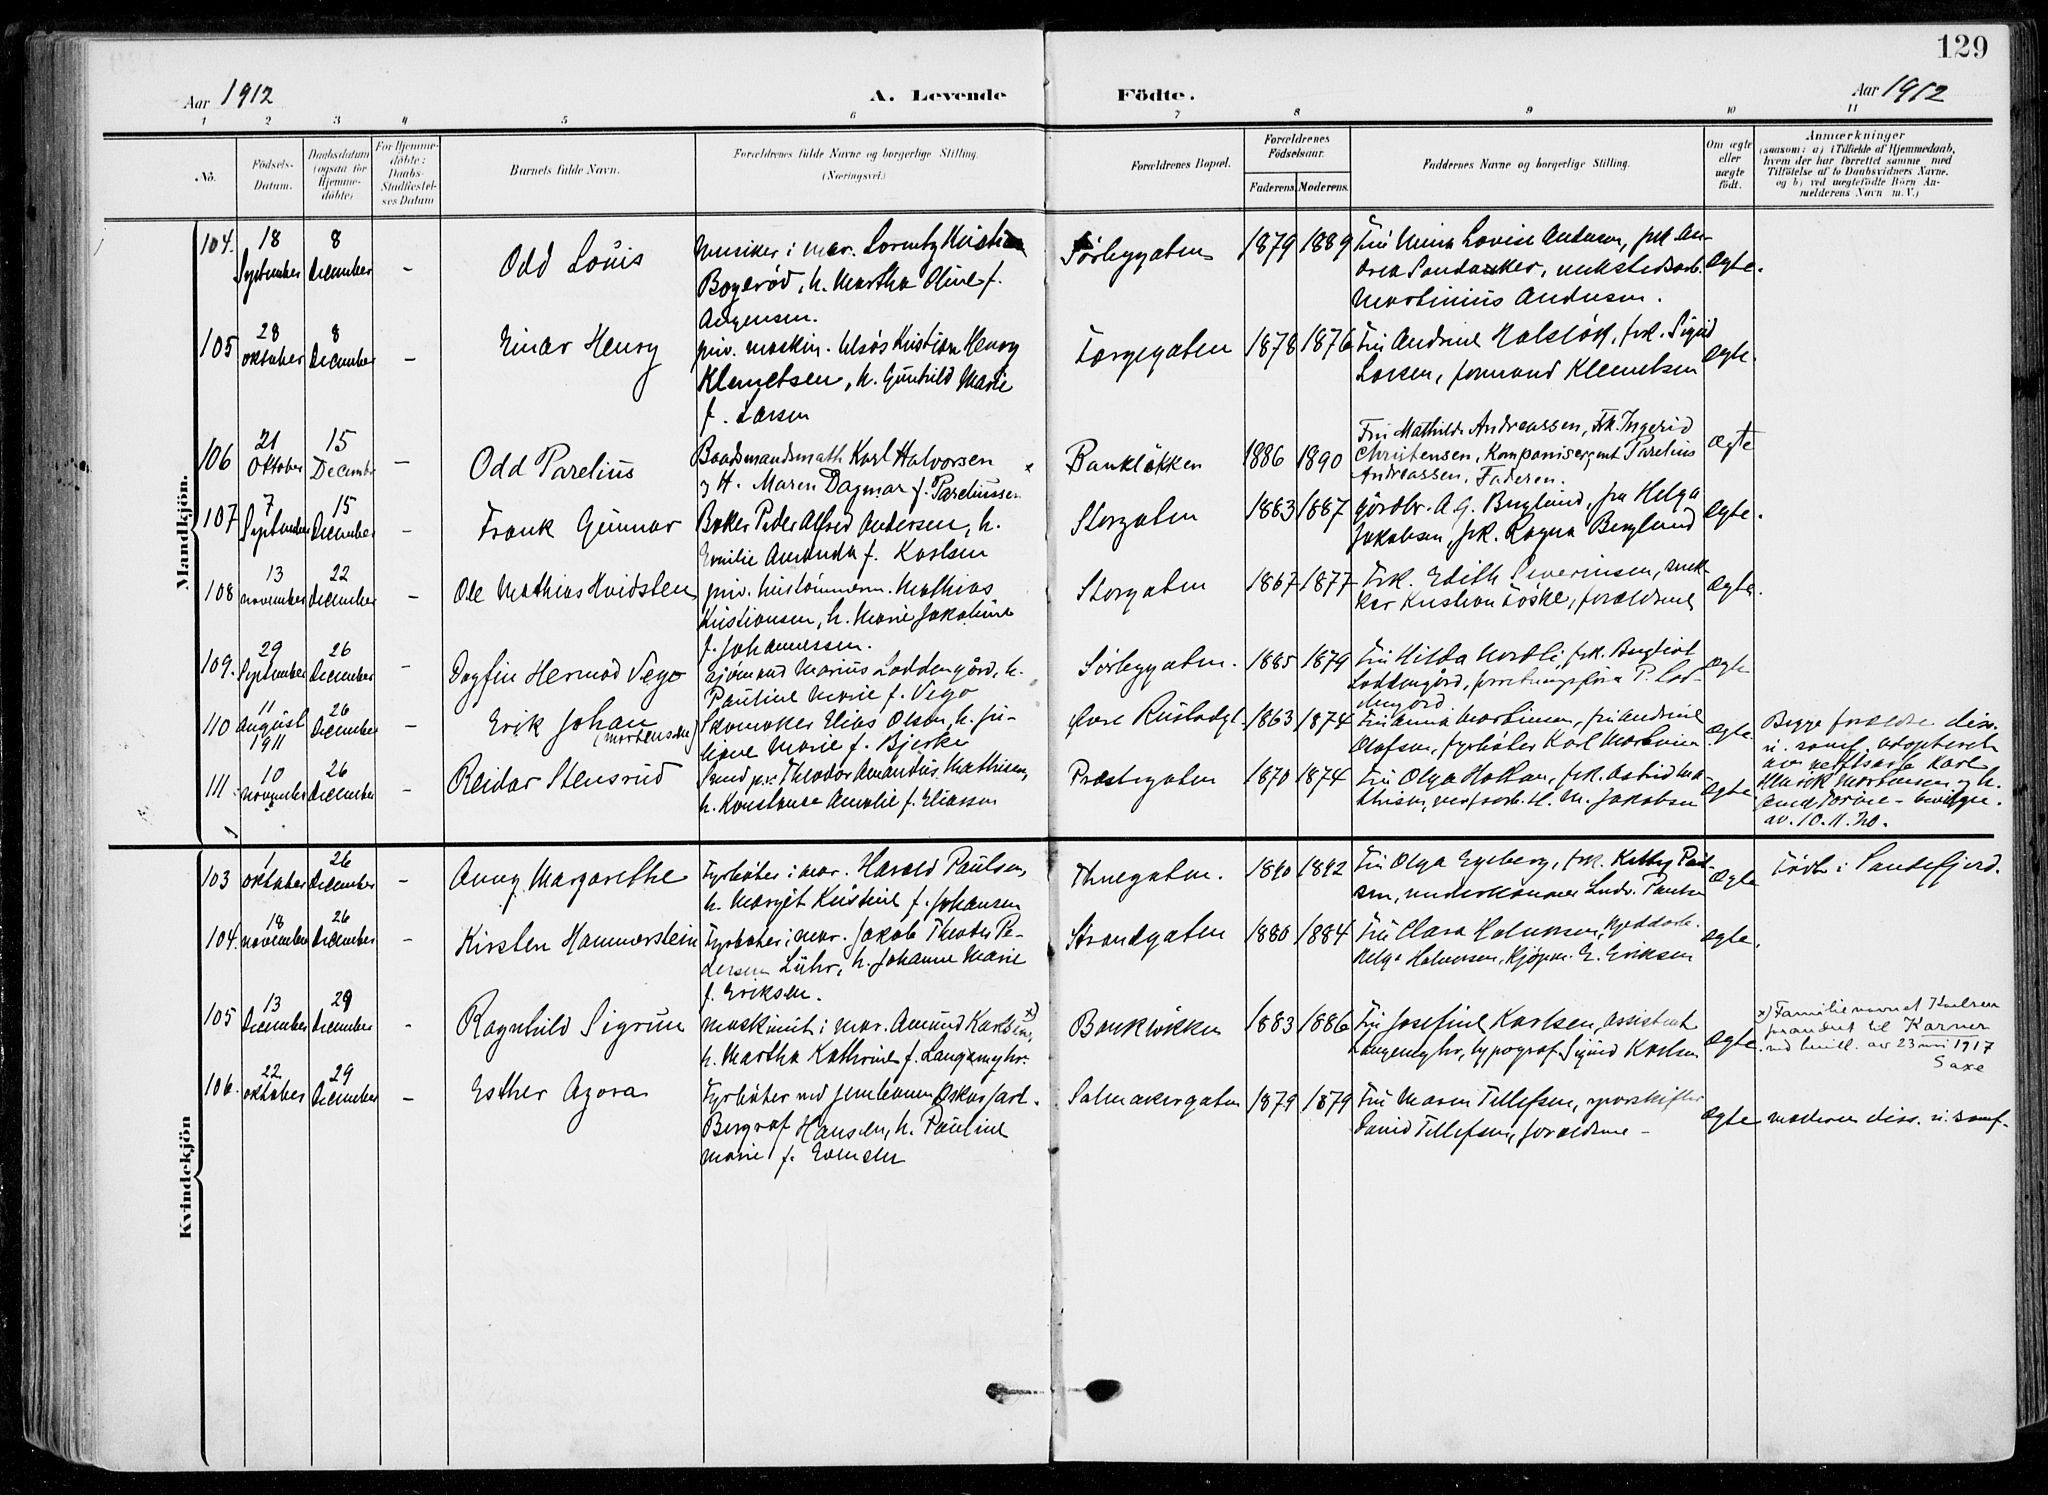 129
Aar 1912
A. Levende Fødte.
Aar 1912
1 2 3 4 5 6 7 8 9 10 11
No.
Fødsels-Datum.
Daabsdatum (ogsaa for Hjemmedøbte)
For Hjemmedøbte: Daabs-Stadfæstelses Datum
Barnets fulde Navn.
Forældrenes fulde Navne og borgerlige Stilling.
(Næringsvei.)
Forældrenes Bopæl.
Forældrenes Fødselsaar.
Faderens. Moderens.
Faddernes Navne og borgerlige Stilling.
Om ægte eller uægte født.
Anmærkninger
(saasom: a) i Tilfælde af Hjemmedaab, hvem der har forrettet samme, med Tilføielse af to Daabsvidners Navne, og b) ved uægtefødte Børn Anmelderens Navn m. V.)
Mandkjön.
104. 18 September 8 December - Odd Louis
Musiker i mar. Lorentz
Bogerød, h. Martha Oline f.
Sørbygaten 1879 1889
Martinius Andersen.
ægte.
105 28 oktober 8 December - Einar Henry
Kristian Henry
Klemetsen, h. Gunhild Marie
f. Larsen
Torvegaten 1878 1876
Fru Andrine Holsløkk, frk. Sigrid
Larsen, formand Klemetsen
ægte.
106 21 Oktober 15 December - Odd Parelius
Baadsmandsmath Karl Halvorsen
og H. Maren Dagmar f. Pareliussen
x Bankløkken 1886 1890
Fru Mathilde Andreassen, Frk. Ingerid
Christensen, Kompanisergent Parelius
Andreassen, Faderen.
ægte
107 7 September 15 December - Frank Gunnar
Baker Peder Alfred Andersen, h.
Emilie Amanda f. Karlsen
Storgaten 1883 1887
gårdbr. A. G. Berglund, fru Helga
Jakobsen, frk. Ragna Berglund
ægte.
108 13 november 22 December - Ole Mathias Hvidsten
Mathias
Kristiansen, h. Marie Jakobine
f. Johannessen.
Storgaten 1867 1877
Frk. Edith Severinsen, snek-
ker Kristian Foske, forældrene
ægte.
109. 29 September 26 December - Dagfin Hermod Vego
Sjømand Marius Loddengård, h.
Pauline Marie f. Vego
Sørbygaten. 1885 1879
Fru Hilda Nordli, frk.
ægte
110 11 August 1911 26 December - Erik Johan
(Mortensen)
Skomaker Elias Olsen, h. Ju-
liane Marie f. Bjerke
1863 1874
Fru Anna Martinsen, fru Andrine
Olafsen, fyrbøter Karl
ægte.
Begge forældre diss.
av 10.11.20.
111. 10 november 26 December - Reidar Stensrud
Theodor Amandus Mathisen,
h. Konstance Amalie f. Eliassen
Prestegaten 1870 1874
H. M. Jakobsen
ægte.
Kvindekjön
103 1 oktober 26 December - Anny Margarethe
Fyrbøter i mar. Harald Paulsen,
h. Margit Kristine f. Johansen
Thuegaten. 1890 1892
Fru Olga Egeberg, frk.
ægte
Født i Sandefjord.
104. 18 november 26 December - Kirsten Hammerstein
Fyrbøter i mar. Jakob Theodor Pe-
dersen Lühr, h. Johanne Marie
f. Eriksen.
Strandgaten 1880 1884
Fru Clara Halvorsen,
Helga Halvorsen, Kjøpm. E. Eriksen
ægte.
105 13 December 29 December - Ragnhild Sigrun
Maskinist i mar. Amund Karlsen, x)
h. Martha Kathrine f. Langemyhr.
Bankløkken 1883 1886
Fru Josefine Karlsen, assistent
Langemyhr, typograf Sigurd Karlsen
ægte.
x) Familienavnet Karlsen
forandret til Karner
ved bevill. av 23 mai 1917
Saxe
106. 22 oktober 29 December - Esther Agora
Fyrbøter ved jernbanen Oskar Jarl-
Bergraf Hansen, h. Pauline
Marie f. Evensen
Salmakergaten 1879 1879
Fru Maren Tellefsen, sporskifter
David Tellefsen, forældrene -
ægte
moderen diss. u. samf.